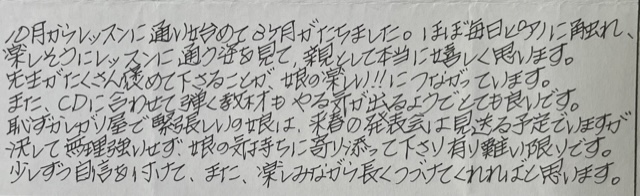 10月からレッスンに通い始めて3ヶ月がたちました。ほぼ毎日ピアノに触れ、
楽しそうにレッスンに通う姿を見て、親として本当に嬉しく思います。
先生がたくさん褒めて下さることが、娘の楽しい!!につながっています。
また、CDに合わせて弾く教材もやる気が出るようでとても良いです。
恥ずかしがり屋で緊張しいの娘は、来春の発表会は見送る予定でいますが
決して無理強いせず娘の気持ちに寄り添って下さり有り難い限りです。
少しずつ自信を付けて、また、楽しみながら長くつづけてくれればと思います。